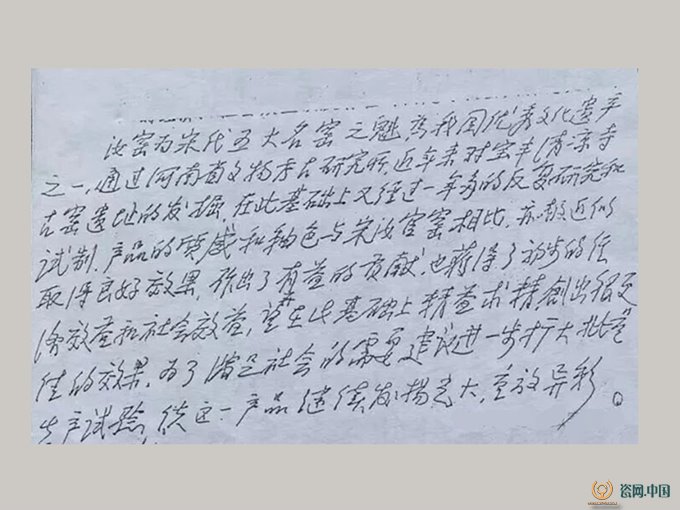 汝窑为宋代五大名窑之魁为我国优秀文化遗产
之一,通过河南省文物考古研究所,近年来对宝丰清凉寺
古窑遗址的发掘,在此基础上又经过一年多的反复研究和
试制,产品的质感和釉色与宋汝官窑相比,亦极近似
取得良好效果,作出了有益的贡献,也获得了初步的经
济效益和社会效益,望在此基础上精益求精创出很更
佳的效果,为了满足社会的需要建议进一步扩大批量
生产试验,使这一产品继续发扬光大,重放异彩。
瓷网.中国